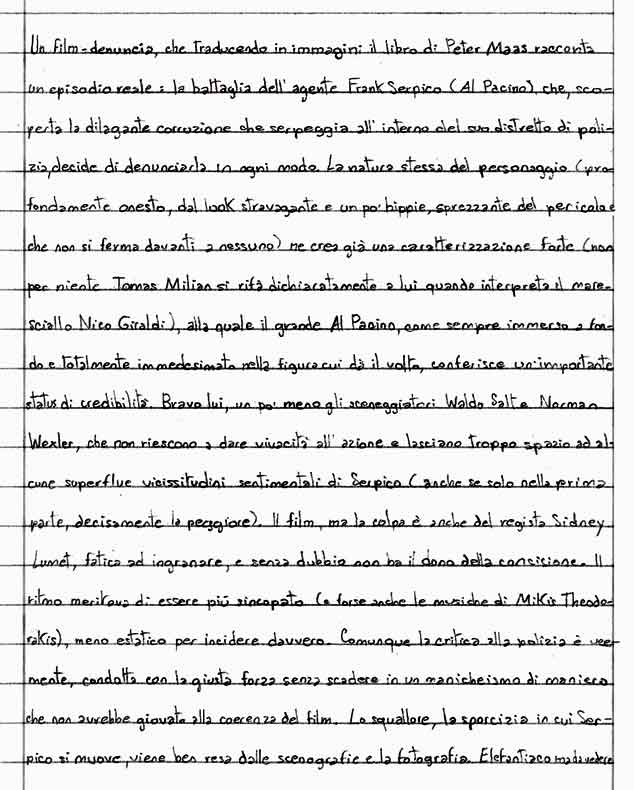 Un film-denuncia, che traducendo in immagini il libro di Peter Maas racconta
un episodio reale: la battaglia dell'agente Frank Serpico (Al Pacino), che, sco-
perta la dilagante corruzione che serpeggia all'interno del suo distretto di poli-
zia, decide di denunciarla in ogni modo. La natura stessa del personaggio (pro-
fondamente onesto, dal look stravagante e un po' hippie, sprezzante del pericolo e
che non si ferma davanti a nessuno) ne crea già una caratterizzazione forte (non
per niente Tomas Milian si rifà dichiaratamente a lui quando interpreta il mare-
sciallo Nico Giraldi), alla quale il grande Al Pacino, come sempre immerso a fon-
do e totalmente immedesimato nella figura cui dà il volto, conferisce un'importante
status di credibilità. Bravo lui, un po' meno gli sceneggiatori Waldo Salt e Norman
Wexler, che non riescono a dare vivacità all'azione e lasciano troppo spazio ad al-
cune superflue vicissitudini sentimentali di Serpico (anche se solo nella prima
parte, decisamente la peggiore). Il film, ma la colpa è anche del regista Sidney
Lumet, fatica ad ingranare, e senza dubbio non ha il dono della concisione. Il
ritmo meritava di essere più sincopato (e forse anche le musiche di Mikis Theodo-
rakis), meno estatico per incidere davvero. Comunque la critica alla polizia è vee-
mente, condotta con la giusta forza senza scadere in un manicheismo di maniera
che non avrebbe giovato alla coerenza del film. Lo squallore, la sporcizia in cui Ser-
pico si muove, viene ben resa dalle scenografie e la fotografia. Elefantiaco ma da vedere